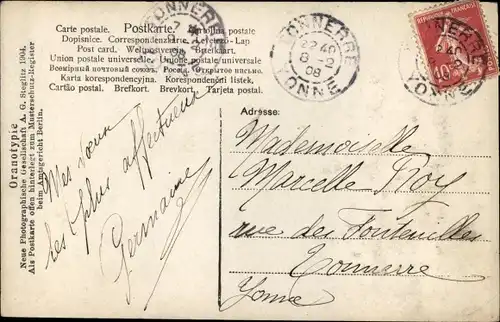 Carte postale. Postkarte. Cartolina postale
Dopisnice. Correspondenzkarte. Levelező-Lap
Post card. Weltpostverein. Briefkaart.
Union postale universelle. Unione postale universale
Всемірный почтовый союз. Открытое письмо.
Karta korespondencyjna. Korrespondenční listek.
Cartão postal. Brefkort. Brevkort. Tarjeta postal.
Oranotypie
Neue Photographische Gesellschaft A. G. Steglitz 1904.
Als Postkarte offen hinterlegt zum Musterschutz-Register
beim Amtsgericht Berlin.
TONNERRE
TONNERRE
22 40
8 - 2
08
YONNE
YONNE
10
Mes vœux
les plus affectueux
Germaine
Adresse:
Mademoiselle
Marcelle Roy
rue des Fontenilles
Tonnerre
Yonne